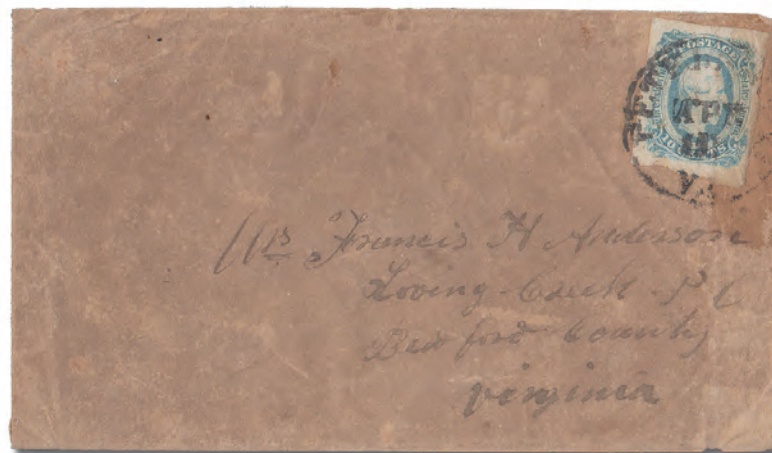 POSTAGE
PETE
APR
VA
Mrs Francis H Anderson
Loving Creek P
Bedford County
Virginia